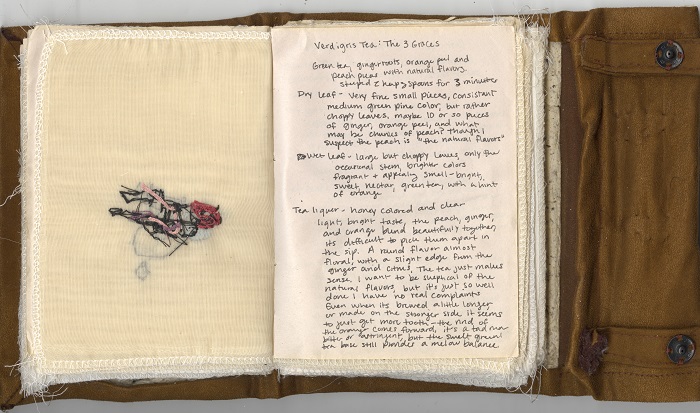 Verdigris Tea: The 3 Graces
Green tea, ginger roots, orange peel and
peach pieces with natural flavors.
steeped 2 heapy spoons for 3 minutes
Dry leaf - Very fine small pieces, consistant
medium green pine color, but rather
choppy leaves, maybe 10 or so pieces
of ginger, orange peel, and what
may be chunks of peach? though I
suspect the peach is "the natural flavors"
Wet leaf - large but choppy leaves, only the
occasional stem, brighter colors
fragrant + appealing smell - bright,
sweet, nectar, green tea, with a hint
of orange
Tea liquer - honey colored and clear
light, bright taste, the peach, ginger,
and orange blend beautifully together,
its difficult to pick them apart in
the sip. A round flavor almost
floral, with a slight edge from the
ginger and citrus. The tea just makes
sense. I want to be skeptical of the
natural flavors, but it's just so well
done I have no real complaints
Even when its brewed a little longer
or made on the stronger side it seems
to just get more tooth - the rind of
the orange comes forward, it's a tad more
bitter or astringent, but the sweet green
tea base still provides a mellow balance